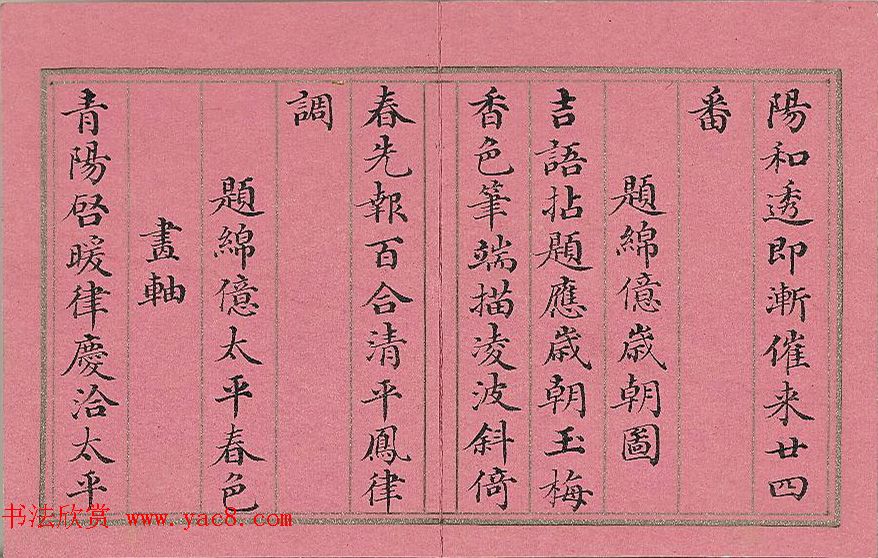 陽和透即漸催来廿四
番
題綿億歳朝圖
吉語拈題應歳朝玉梅
香色筆端描凌波斜倚
春先報百合清平鳳律
調
題綿億太平春色
畫軸
青陽啓暖律慶洽太平
书法欣赏 www.yac8.com